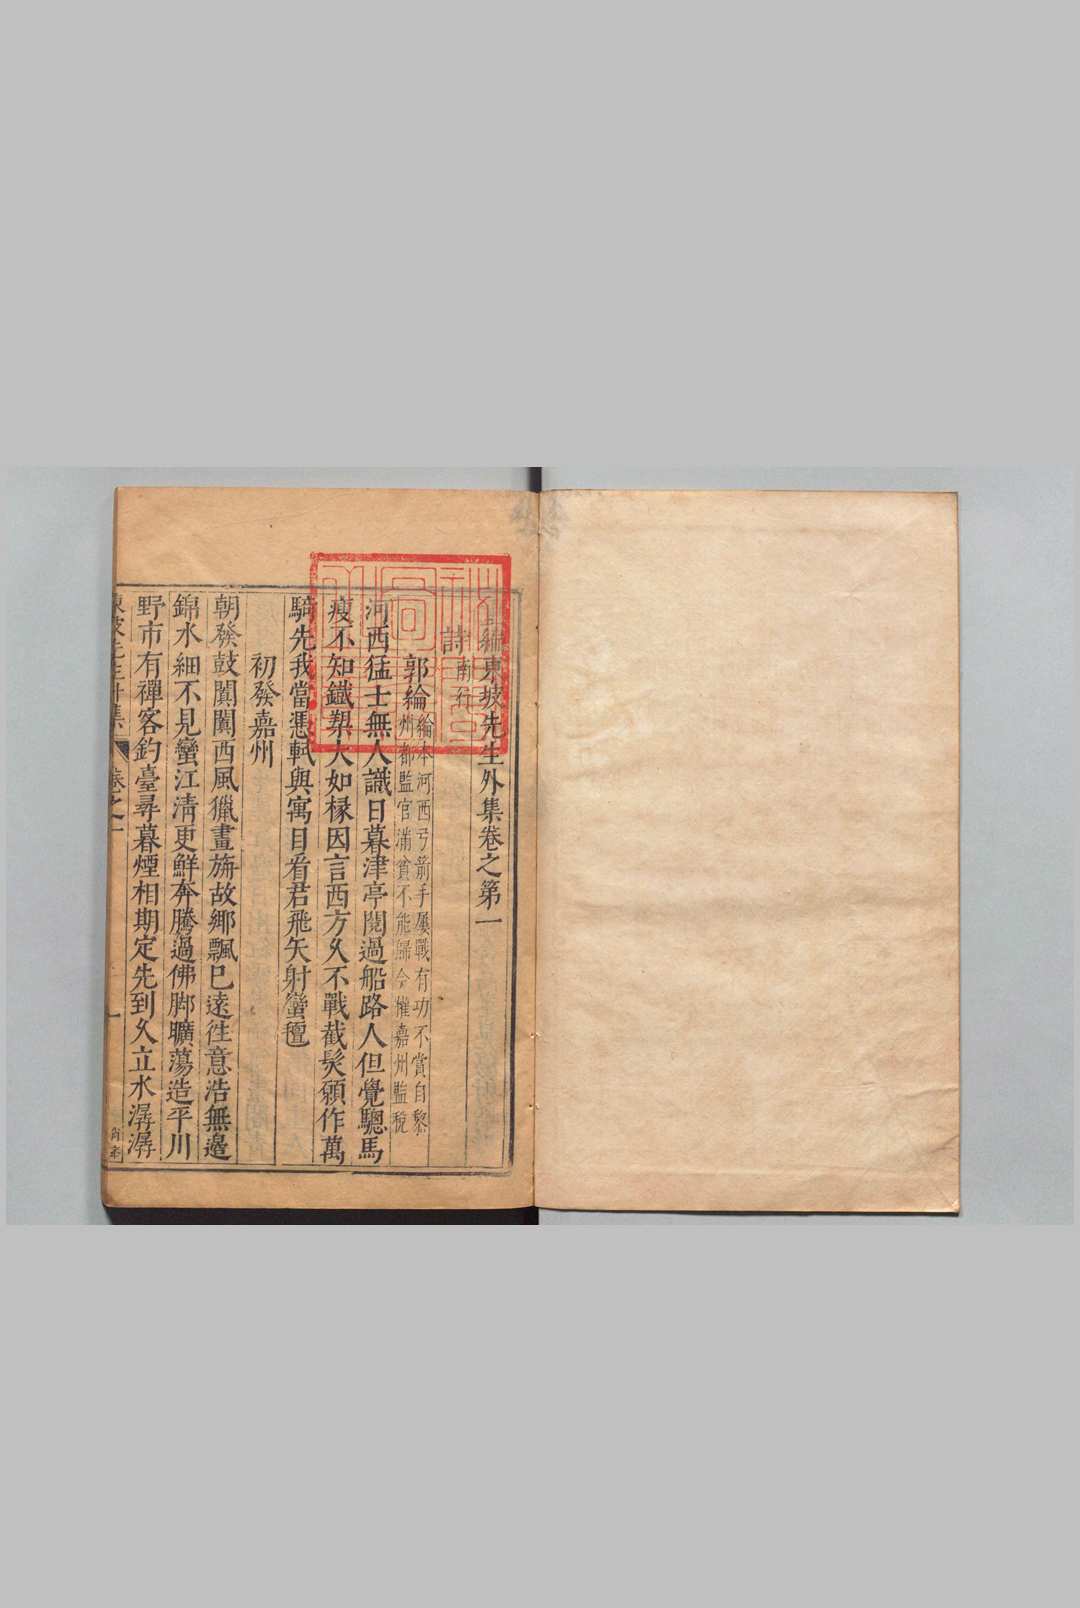 重編東坡先生外集卷之第一
詩 南行
郭綸 綸本河西弓箭手屢戰有功不賞自黎
州都監官滿貧不能歸今權嘉州監稅
河西猛士無人識日暮津亭閱過船路人但覺驄馬
瘦不知鐵槊大如椽因言西方久不戰截髮願作萬
騎先我當憑軾與寓目看君飛矢射蠻氊
初發嘉州
朝發鼓闐闐西風獵畫旃故鄉飄已遠徃意浩無邊
錦水細不見蠻江清更鮮奔騰過佛脚曠蕩造平川
野市有禪客釣臺尋暮煙相期定先到久立水潺潺
東坡先生外集 卷之一 一